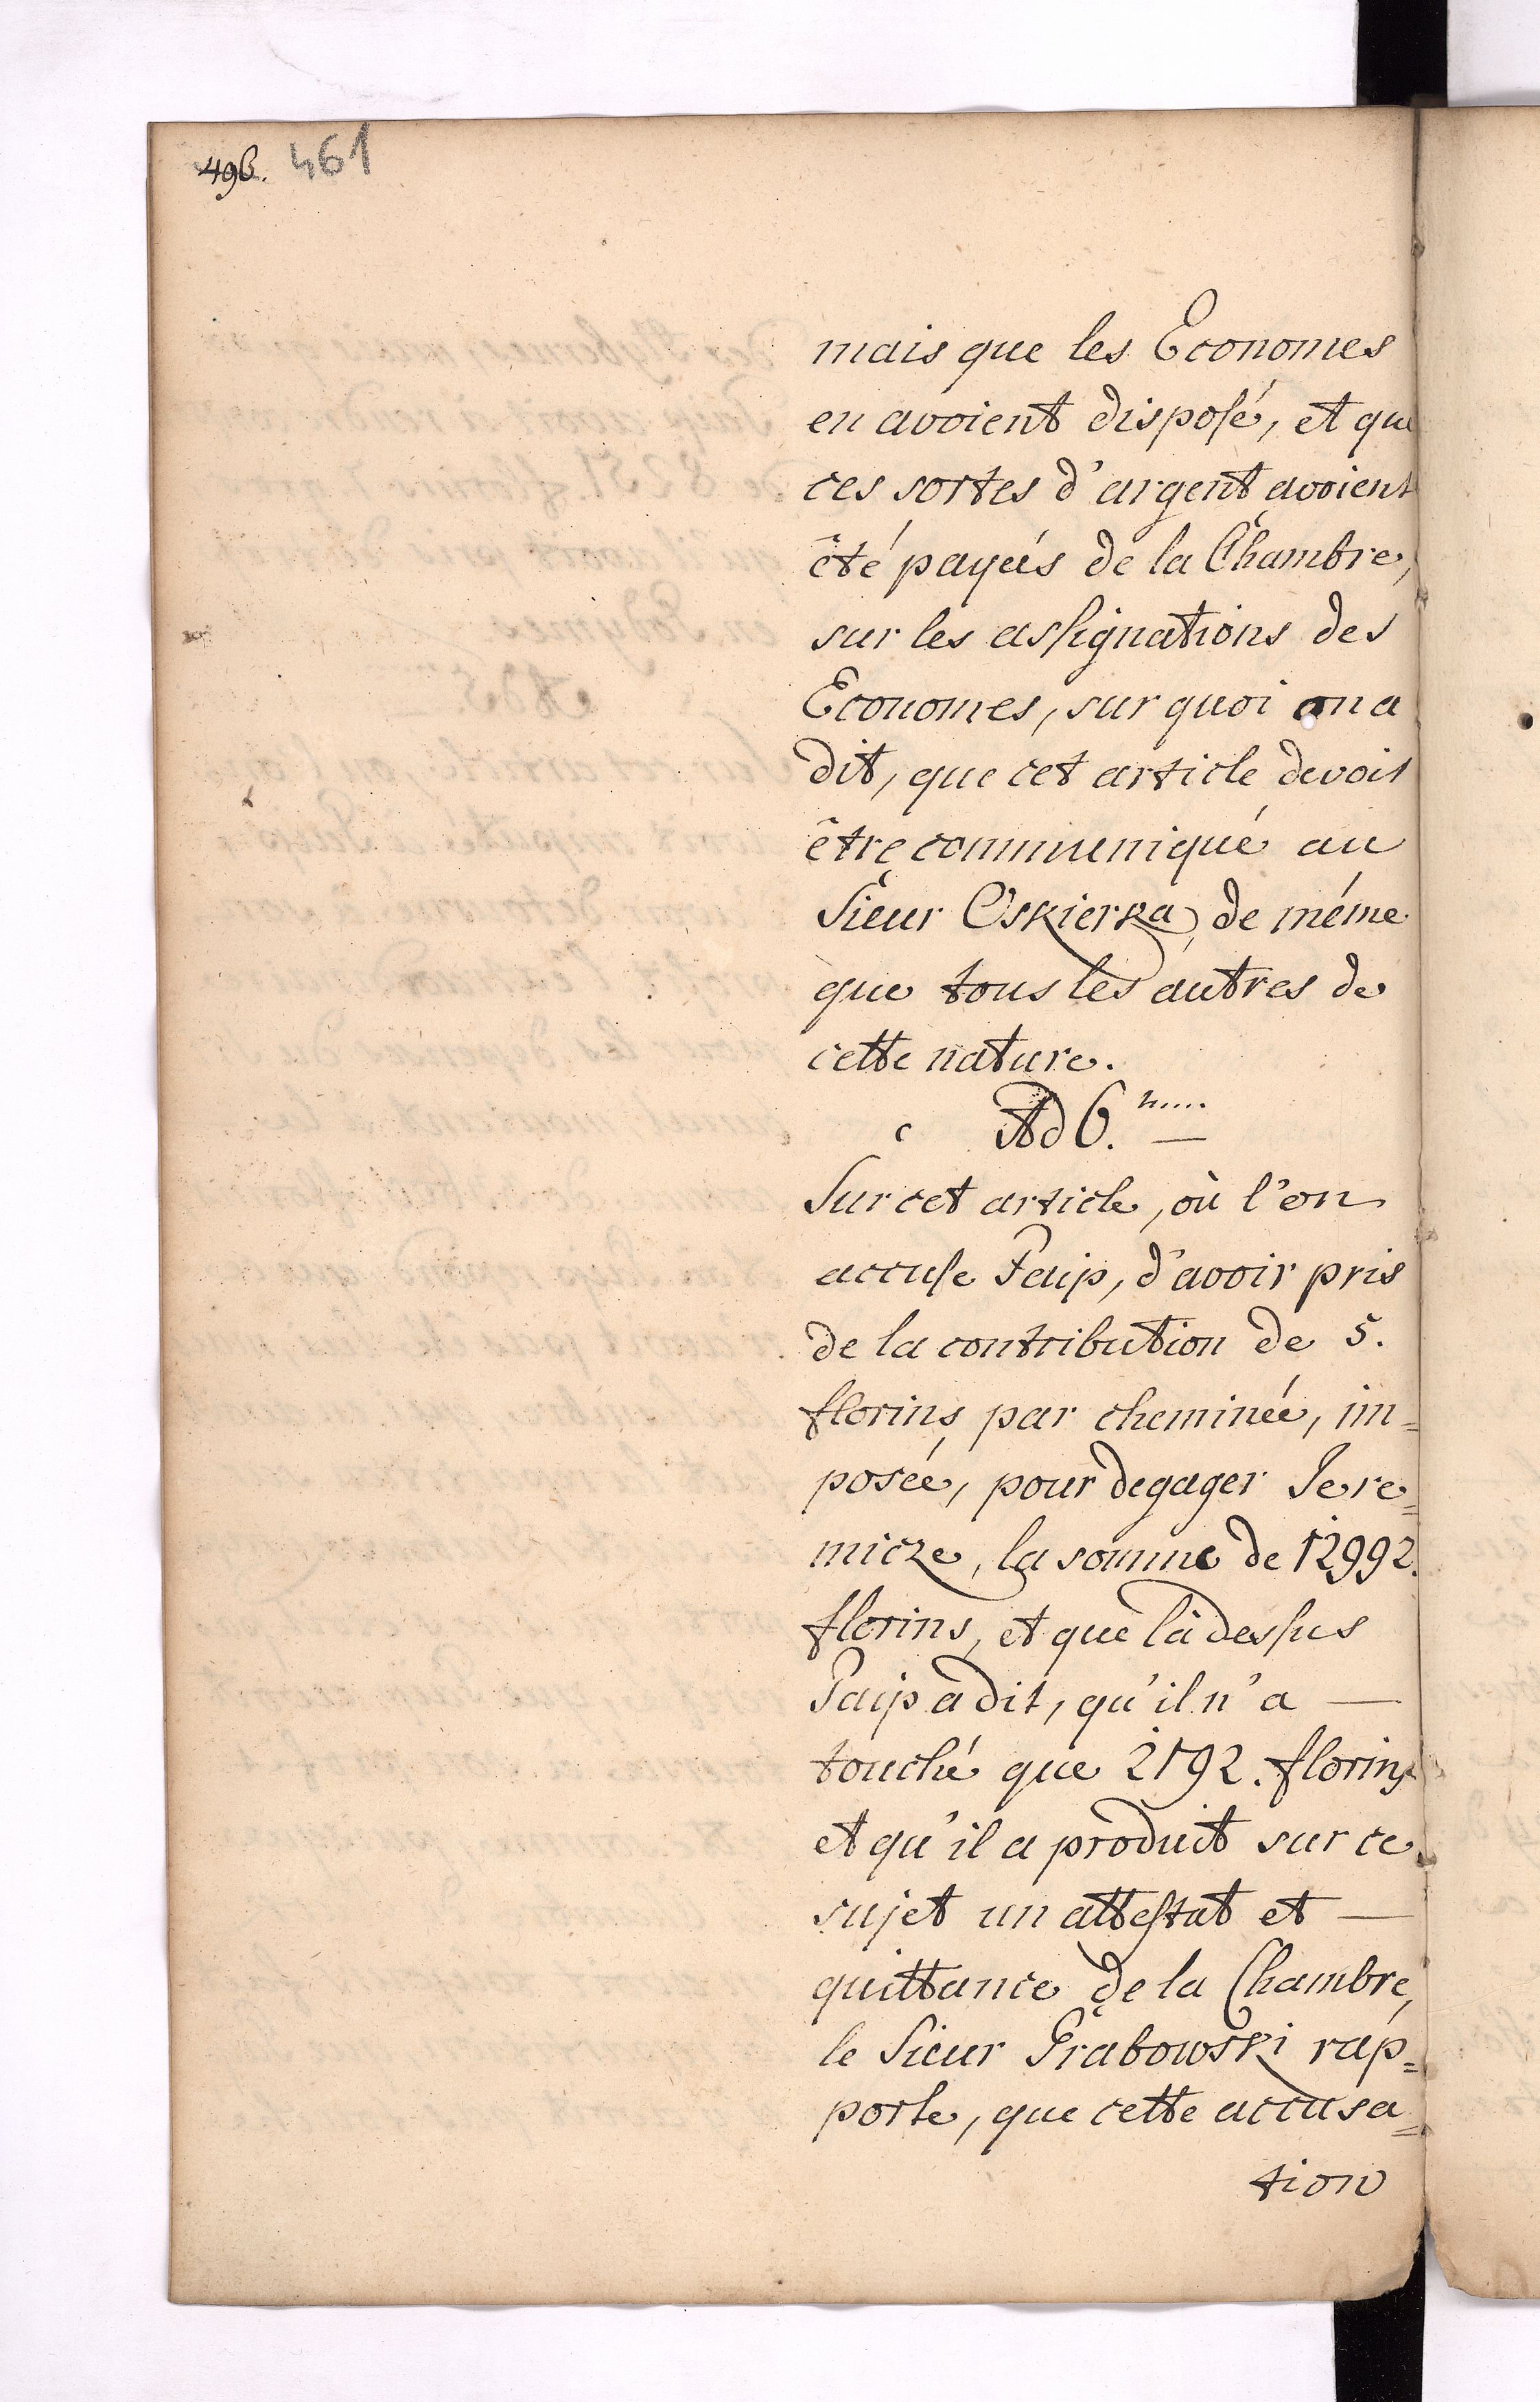 496. 461
mais que les Economes
en avoient disposé, et que
ces sortes d'argent avoient
été payées de la Chambre,
sur les assignations des
Economes, sur quoi on a
dit, que cet article devoit
être communiqué au
Sieur Oskierka, de même
que tous les autres de
cette nature.
Ad 6.
Sur cet article, où l'on
accuse Paip, d'avoir pris
de la contribution de 5.
florins par cheminée, im=
posée, pour degager Jere=
micze, la somme de 12992.
florins, et que là dessus
Paip a dit, qu'il n'a —
touché que 2192. florins
et qu'il a produit sur ce
sujet un attestat et —
quittance de la Chambre,
le Sieur Grabowski rap=
porte, que cette accusa=
tion